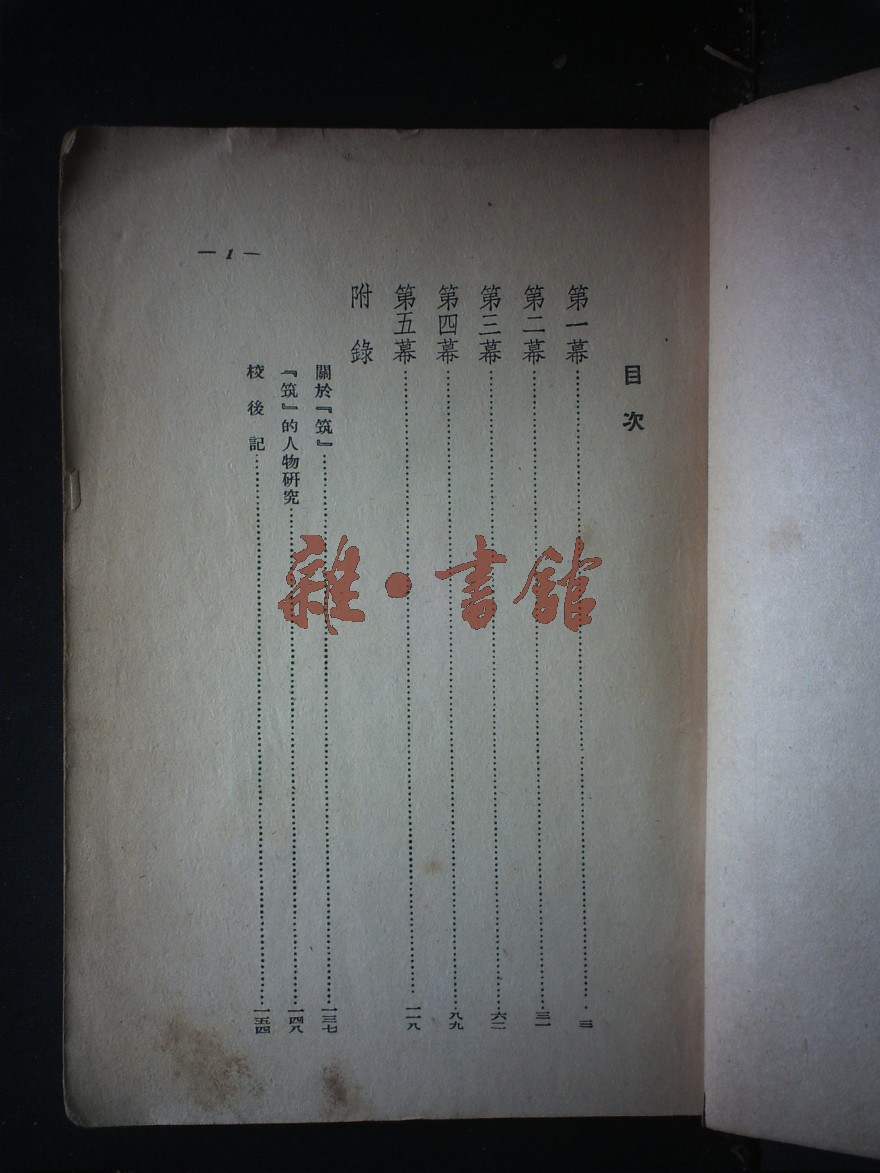 目次
第一幕……三
第二幕……三一
第三幕……六二
第四幕……八九
第五幕……一一八
附錄
關於『筑』……一三七
『筑』的人物研究……一四八
校後記……一五四
— 1 —
雜·書館